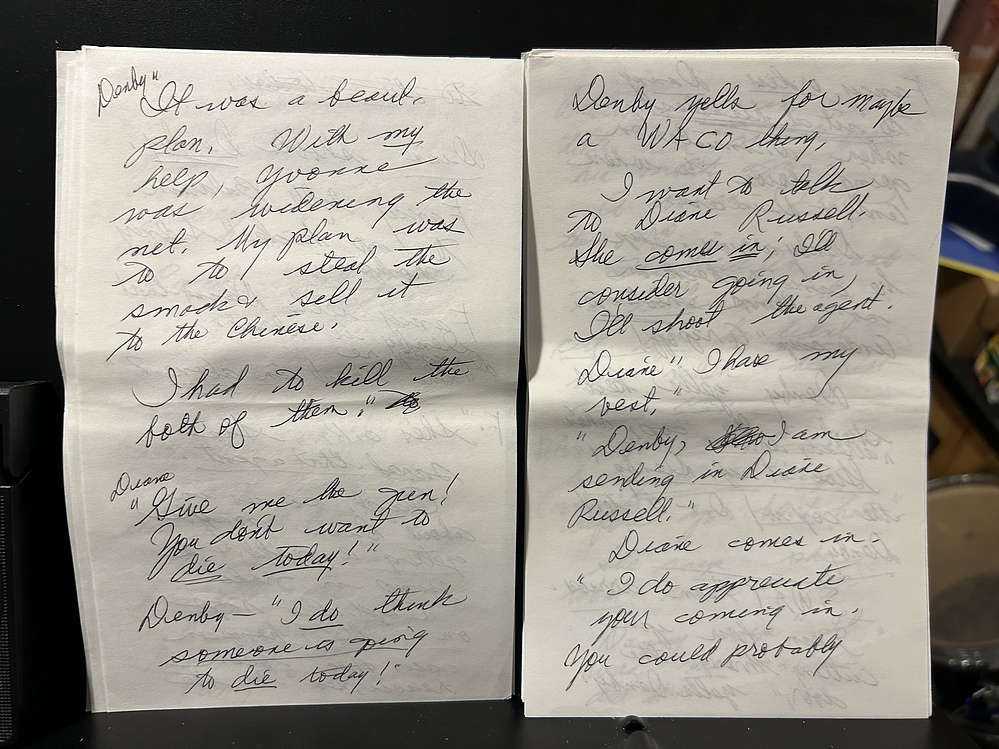 Denby "It was a beaut.
plan. With my
help, Yvonne
was widening the
net. My plan was
to to, steal the
smack & sell it
to the Chinese.
I had to kill the
both of them."
Diane
"Give me the gun!
You don't want to
die today!"
Denby — "I do think
someone is going
to die today!"
Denby yells for maybe
a WACO thing,
I want to talk
to Diane Russell.
She comes in; I'll
consider going in,
I'll shoot the agent.
Diane "I have my
vest."
"Denby, I am
sending in Diane
Russell."
Diane comes in.
"I do appreciate
your coming in.
You could probably